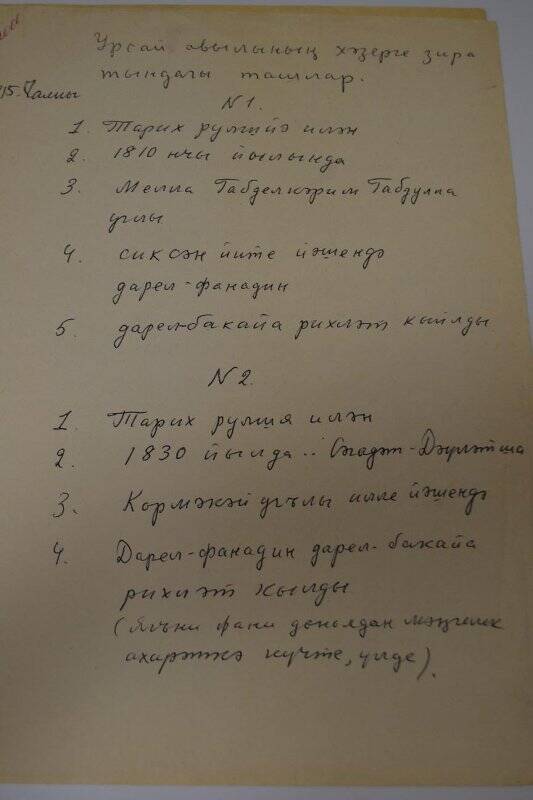 Урсай авылының хәзерге зира
тындагы ташлар.
N 1.
1. Тарих румийә илән
2. 1810 нчы йылында
3. Мелла Габделкәрим Габдулла
углы
4. сиксән йите йәшендә
дарел-фанадин
5. дарел-бакайа рихләт кыйлды
N 2.
1. Тарих румия илән
2. 1830 йылда .. Сәгадәт-Дәүләтша
3. Кормәкәй угълы илле йәшендә
4. Дарел-фанадин дарел-бакайа
рихләт кылды
(ягъни фани дөньядан мәңгелек
ахирәткә күчте, үлде).